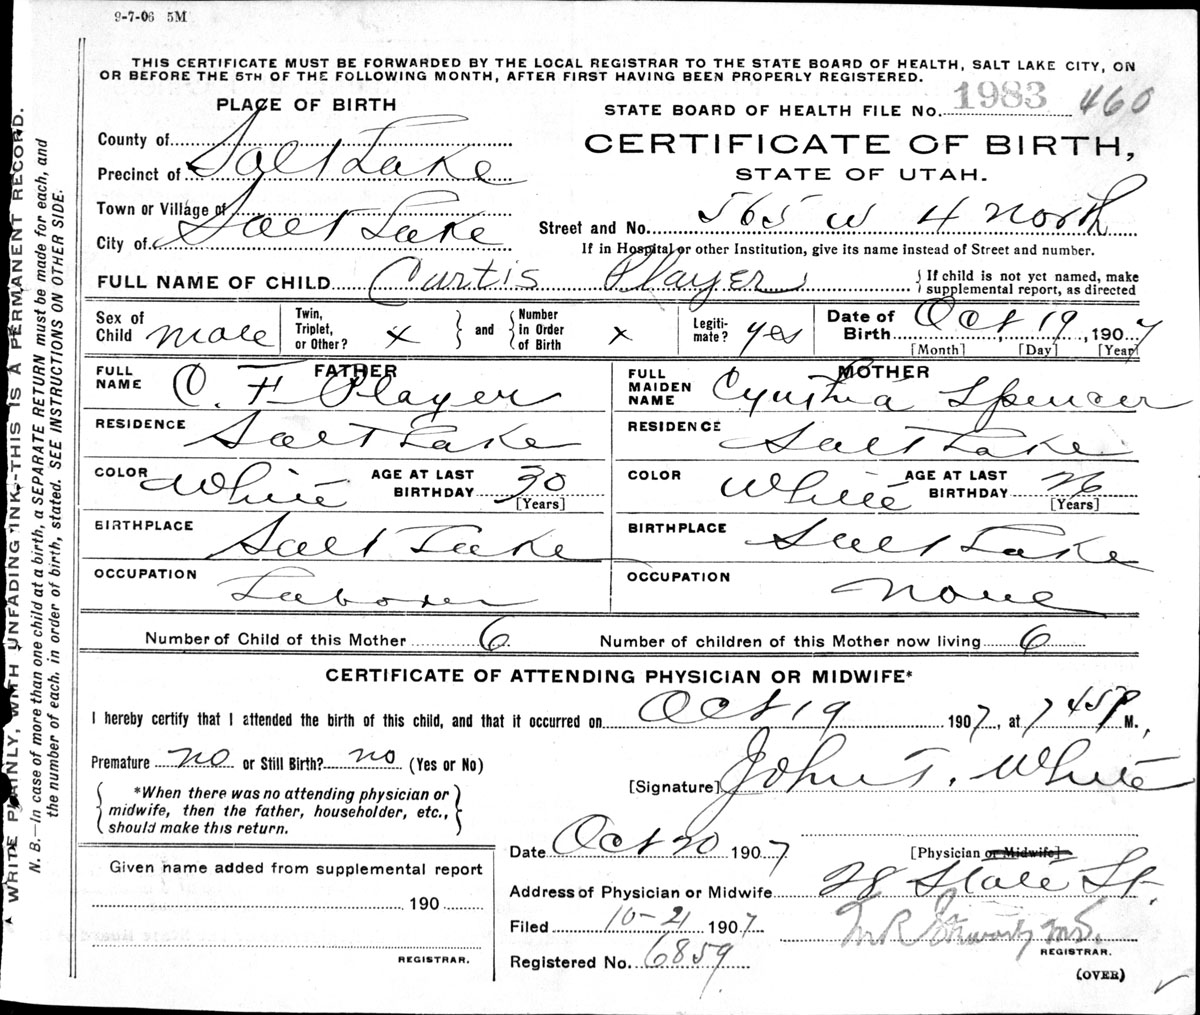 9-7-06 5M
THIS CERTIFICATE MUST BE FORWARDED BY THE LOCAL REGISTRAR TO THE STATE BOARD OF HEALTH, SALT LAKE CITY, ON
OR BEFORE THE 5TH OF THE FOLLOWING MONTH, AFTER FIRST HAVING BEEN PROPERLY REGISTERED.
PLACE OF BIRTH
STATE BOARD OF HEALTH FILE No. 1983 460
County of
Precinct of Salt Lake
CERTIFICATE OF BIRTH,
STATE OF UTAH.
Town or Village of
City of Salt Lake
Street and No. 565 W 4 North
If in Hospital or other Institution, give its name instead of Street and number.
FULL NAME OF CHILD Curtis Player
{ If child is not yet named, make
supplemental report, as directed
Sex of Child male
Twin, Triplet, or Other? x } and { Number in Order of Birth x
Legiti-mate? yes
Date of Birth Oct 19, 1907
[Month] [Day] [Year]
FATHER
FULL NAME O. F Player
MOTHER
FULL MAIDEN NAME Cynthia Spencer
RESIDENCE Salt Lake
RESIDENCE Salt Lake
COLOR White AGE AT LAST BIRTHDAY 30 [Years]
COLOR White AGE AT LAST BIRTHDAY 26 [Years]
BIRTHPLACE Salt Lake
BIRTHPLACE Salt Lake
OCCUPATION Laborer
OCCUPATION None
Number of Child of this Mother 6. Number of children of this Mother now living 6
CERTIFICATE OF ATTENDING PHYSICIAN OR MIDWIFE*
I hereby certify that I attended the birth of this child, and that it occurred on Oct 19 1907, at 7 45 P M.,
Premature no or Still Birth? no (Yes or No)
[Signature] John T. White
{ *When there was no attending physician or
midwife, then the father, householder, etc.,
should make this return. }
[Physician or Midwife]
Date Oct 20 1907
Given name added from supplemental report
190
REGISTRAR.
Address of Physician or Midwife 28 State St.
Filed 10-21 1907
REGISTRAR.
Registered No. 6859
(OVER)
WRITE PLAINLY, WITH UNFADING INK.-THIS IS A PERMANENT RECORD.
N. B.—In case of more than one child at a birth, a SEPARATE RETURN must be made for each, and
the number of each, in order of birth, stated. SEE INSTRUCTIONS ON OTHER SIDE.